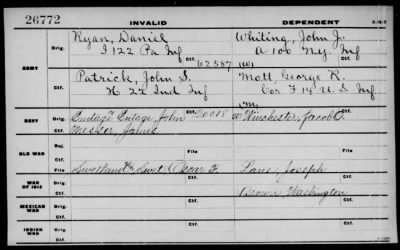 26772 INVALID DEPENDENT
ARMY
Orig. Ryan, Daniel Whiting, John J.
I 122 Pa Inf A 100 N.Y. Inf
Ctf. 62587
Orig. Patrick, John S. Mott, George R.
H 22 Ind Inf Cor F 14 U.S. Inf
Ctf.
NAVY Orig. John 20018 Winchester, Jacob
Ctf. Messer, James
OLD WAR Rej.
Ctf. File File
WAR OF 1812 Orig. Oscar F. Lane, Joseph
Ctf. Brown Washington
MEXICAN WAR Orig.
Ctf.
INDIAN WAR Orig.
Ctf.